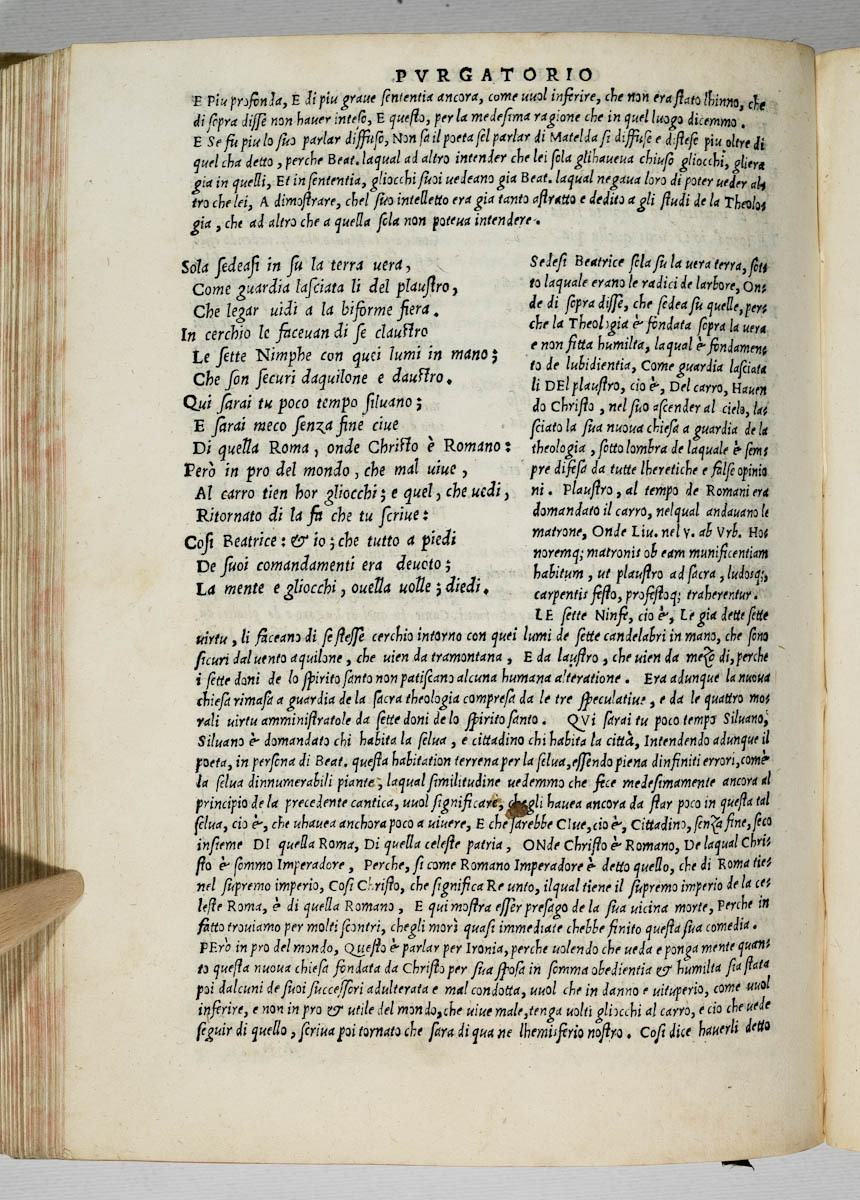 PVRGATORIO
E Piu profonda, E di piu graue sententia ancora, come uuol inferire, che non era stato lhinno, che
di sopra disse non hauer inteso, E questo, per la medesima ragione che in quel luogo dicemmo.
E Se fu piu lo suo parlar diffuso, Non sa il poeta sel parlar di Matelda si diffuse e distese piu oltre di
quel cha detto, perche Beat. laqual ad altro intender che lei sola glihaueua chiuso gliocchi, gliera
gia in quelli, Et in sententia, gliocchi suoi uedeano gia Beat. laqual negaua loro di poter ueder al-
tro che lei, A dimostrare, chel suo intelletto era gia tanto astratto e dedito a gli studi de la Theolo-
gia, che ad altro che a quella sola non poteua intendere.
Sola sedeasi in su la terra uera,
Come guardia lasciata li del plaustro,
Che legar uidi a la biforme fiera.
In cerchio le faceuan di se claustro
Le sette Nimphe con quei lumi in mano;
Che son securi daquilone e daustro.
Qui sarai tu poco tempo siluano;
E sarai meco senza fine ciue
Di quella Roma, onde Christo è Romano:
Però in pro del mondo, che mal uiue,
Al carro tien hor gliocchi; e quel, che uedi,
Ritornato di la fa che tu scriue:
Cosi Beatrice: & io; che tutto a piedi
De suoi comandamenti era deuoto;
La mente e gliocchi, ouella uolle; diedi.
Sedesi Beatrice sola su la uera terra, sot-
to laquale erano le radici de larbore, On-
de di sopra disse, che sedea su quelle, per-
che la Theologia è fondata sopra la uera
e non fitta humilta, laqual è fondamen-
to de lubidientia, Come guardia lasciata
li DEl plaustro, cio è, Del carro, Hauen
do Christo, nel suo ascender al cielo, las-
sciato la sua nuoua chiesa a guardia de la
theologia, sotto lombra de laquale è sem-
pre difesa da tutte lheretiche e false opinio
ni. Plaustro, al tempo de Romani era
domandato il carro, nelqual andauano le
matrone, Onde Liu. nel v. ab Vrb. Ho-
noremq; matronis ob eam munificentiam
habitum, ut plaustro ad sacra, ludosq;,
carpentis festo, profestoq; traherentur.
LE sette Ninfe, cio è, Le gia dette sette
uirtu, li faceano di se stesse cerchio intorno con quei lumi de sette candelabri in mano, che sono
sicuri dal uento aquilone, che uien da tramontana, E da laustro, che uien da mezo di, perche
i sette doni de lo spirito santo non patiscano alcuna humana alteratione. Era adunque la nuoua
chiesa rimasa a guardia de la sacra theologia compresa da le tre speculatiue, e da le quattro mo-
rali uirtu amministratole da sette doni de lo spirito santo. QVi sarai tu poco tempo Siluano,
Siluano è domandato chi habita la selua, e cittadino chi habita la città, Intendendo adunque il
poeta, in persona di Beat. questa habitation terrena per la selua, essendo piena dinfiniti errori, come
la selua dinnumerabili piante, laqual similitudine uedemmo che fece medesimamente ancora al
principio de la precedente cantica, uuol significare, chegli hauea ancora da star poco in questa tal
selua, cio è, che uhauea anchora poco a uiuere, E che sarebbe CIue, cio è, Cittadino, senza fine, seco
insieme DI quella Roma, Di quella celeste patria, ONde Christo è Romano, De laqual Chri-
sto è sommo Imperadore, Perche, si come Romano Imperadore è detto quello, che di Roma tie-
nel supremo imperio, Cosi Christo, che significa Re unto, ilqual tiene il supremo imperio de la ce-
leste Roma, è di quella Romano, E qui mostra esser presago de la sua uicina morte, Perche in
fatto trouiamo per molti scontri, chegli morì quasi immediate chebbe finito questa sua comedia.
PErò in pro del mondo, Questo è parlar per Ironia, perche uolendo che ueda e ponga mente quan-
to questa nuoua chiesa fondata da Christo per sua sposa in somma obedientia & humilta sia stata
poi dalcuni de suoi successori adulterata e mal condotta, uuol che in danno e uituperio, come uuol
inferire, e non in pro & utile del mondo, che uiue male, tenga uolti gliocchi al carro, e cio che uede
seguir di quello, scriua poi tornato che sara di qua ne lhemisferio nostro. Cosi dice hauerli detto